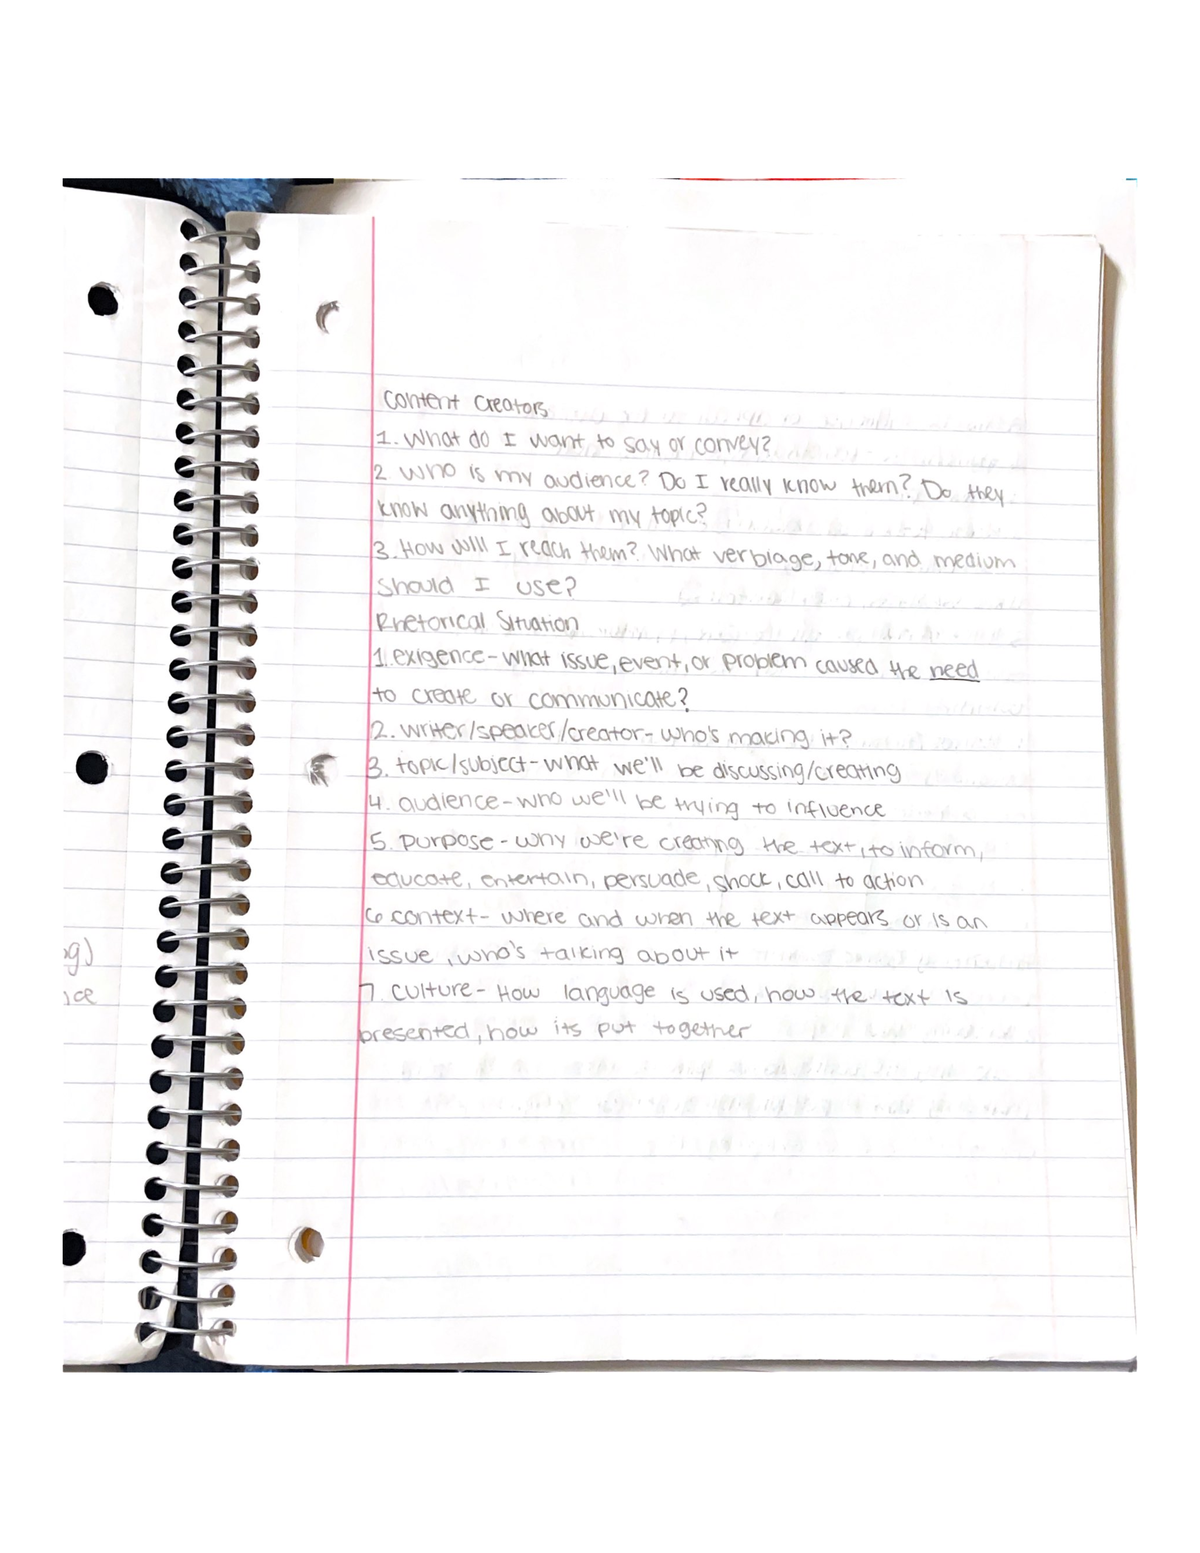 Content Creators
1. What do I want to say or convey?
2. Who is my audience? Do I really know them? Do they
know anything about my topic?
3. How will I reach them? What verbiage, tone, and medium
should I use?
Rhetorical Situation
1. exigence - what issue, event, or problem caused the need
to create or communicate?
2. writer/speaker/creator - who's making it?
3. topic/subject - what we'll be discussing/creating
4. audience - who we'll be trying to influence
5. purpose - why we're creating the text, to inform,
educate, entertain, persuade, shock, call to action
6 context - where and when the text appears or is an
issue, who's talking about it
7. culture - How language is used, how the text is
presented, how its put together